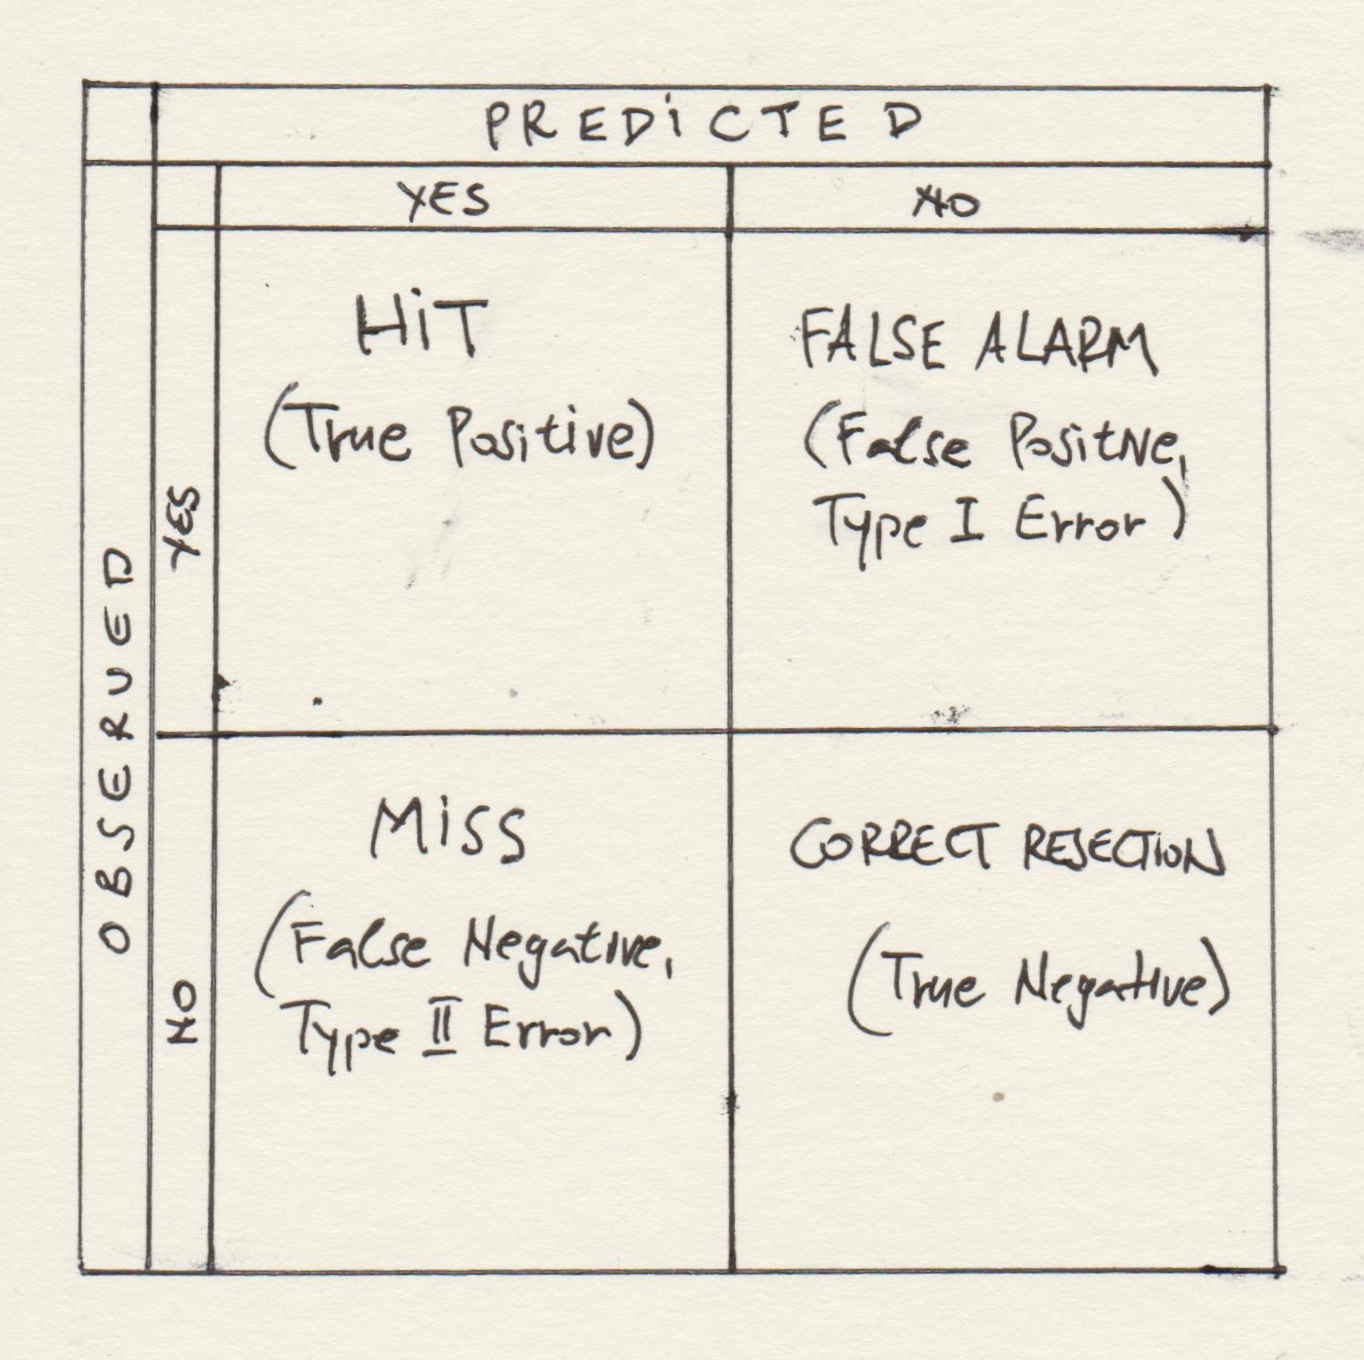 PREDiCTED
YES
NO
OBSERVED
YES
HiT
(True Positive)
FALSE ALARM
(False Positive,
Type I Error)
NO
MiSS
(False Negative,
Type II Error)
CORRECT REJECTION
(True Negative)